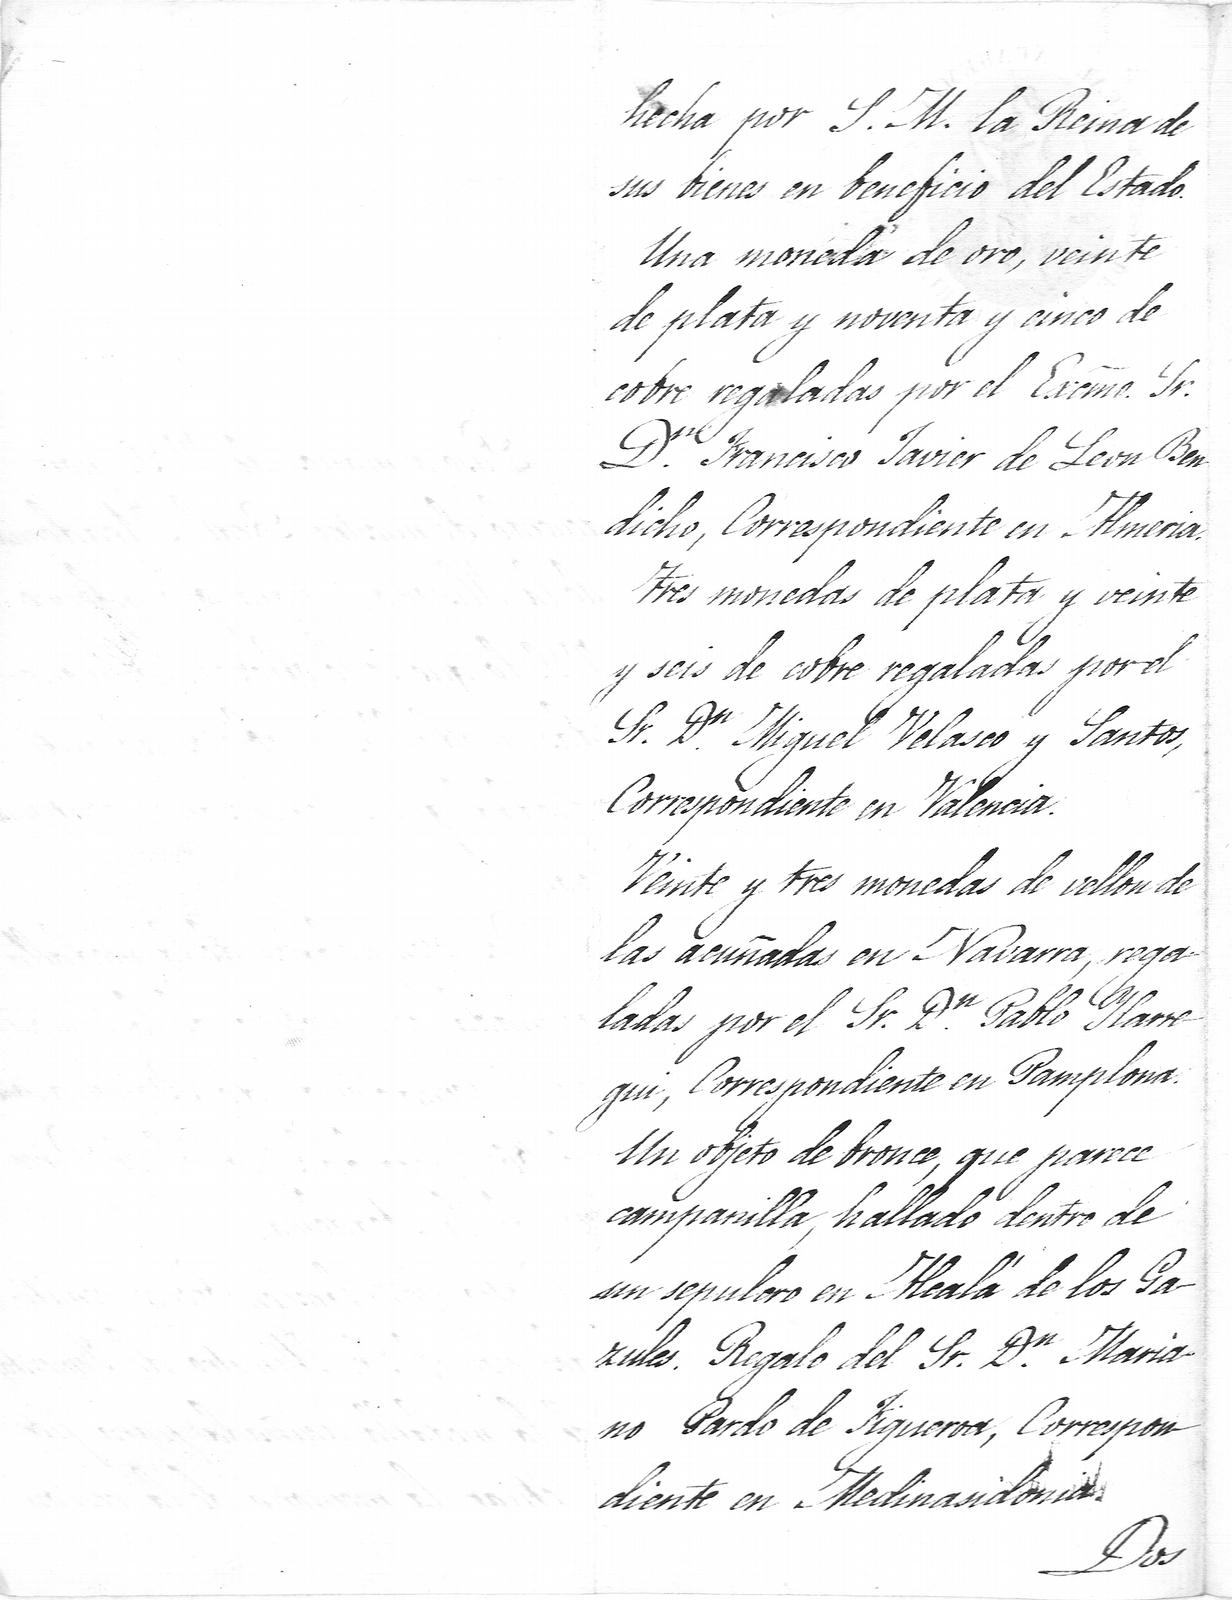 hecha por S. M. la Reina de
sus bienes en beneficio del Estado.
Una moneda de oro, veinte
de plata y noventa y cinco de
cobre regaladas por el Excmo. Sr.
Dn. Francisco Javier de Leon Ben
dicho, Correspondiente en Almeria.
Tres monedas de plata y veinte
y seis de cobre regaladas por el
Sr. Dn. Miguel Velasco y Santos,
Correspondiente en Valencia.
Veinte y tres monedas de vellon de
las acuñadas en Navarra, rega-
ladas por el Sr. Dn. Pablo Ylarre-
gui, Correspondiente en Pamplona.
Un objeto de bronce, que parece
campanilla, hallado dentro de
un sepulcro en Alcalá de los Ga-
zules. Regalo del Sr. Dn. Maria-
no Pardo de Figueroa, Correspon-
diente en Medinasidonia.
Dos